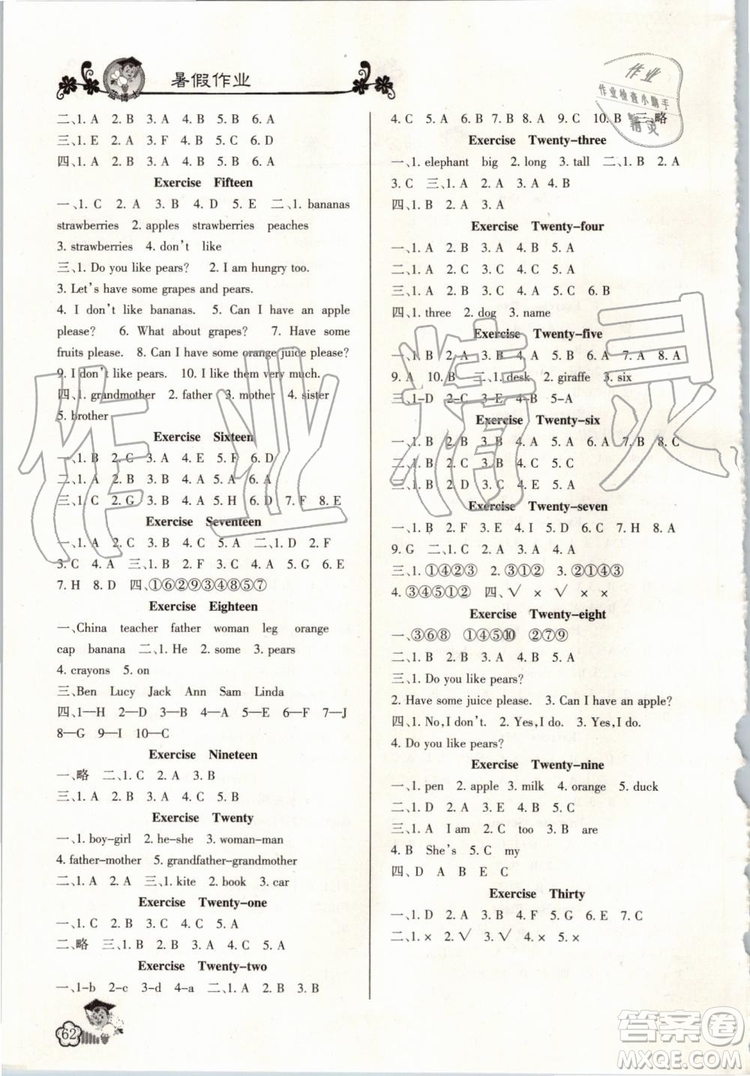 暑假作业
二、1. A 2. B 3. A 4. B 5. A
三、1. E 2. A 3. D 4. B 5. C
四、1. A 2. B 3. A 4. A 5. A
Exercise Fifteen
一、1. C 2. A 3. D 4. B 二、1. bananas
strawberries 2. apples strawberries peaches
3. strawberries 4. don't like
三、1. Do you like pears? 2. I am hungry too.
3. Let's have some grapes and pears.
4. I don't like bananas. 5. Can I have an apple
please? 6. What about grapes? 7. Have some
fruits please. 8. Can I have some orange juice please?
9. I don't like pears. 10. I like them very much.
四、1. grandmother 2. father 3. mother 4. sister
5. brother
Exercise Sixteen
一、1. B 2. C 3. A 4. E 5. F 6. D
二、1. A 2. B 3. B 4. A 5. A
三、1. C 2. G 3. B 4. A 5. H 6. D 7. F 8. E
Exercise Seventeen
一、1. A 2. C 3. C 4. A 二、1. D 2. F
3. C 4. A 三、1. B 2. F 3. A 4. G 5. C 6. E
7. H 8. D 四、①⑥②⑨③④⑧⑤⑦
Exercise Eighteen
一、China teacher father woman leg orange
cap banana 二、1. He 2. some 3. pears
4. crayons 5. on
三、Ben Lucy Jack Ann Sam Linda
四、1—H 2—A 3—B 4—I 5—D 6—E 7—J
8—G 9—F 10—C
Exercise Nineteen
一、略 二、1. C 2. A 3. B 4. B 5. A
三、1. A 2. B 3. A 4. C 5. B
Exercise Twenty
一、1. boy-girl 2. he-she 3. woman-man
4. father-mother 5. grandfather-grandmother
二、1. C 2. A 三、1. kite 2. book 3. car
Exercise Twenty-one
一、1. C 2. B 3. B 4. A 5. A
二、略 三、1. B 2. A 3. B 4. B 5. A
Exercise Twenty-two
一、1-b 2-c 3-d 4-a 二、1. B 2. B 3. C
62
4. C 5. A 6. B 7. B 8. A 9. C 10. B 三、略
Exercise Twenty-three
一、1. elephant big 2. long 3. tall 二、1. B 2. A
3. C 三、1. B 2. A 3. A 4. B
四、1. B 2. A 3. A 4. A 5. A
Exercise Twenty-four
一、1. A 2. B 3. B 4. B 5. A
二、1. A 2. B 3. A 4. B 5. A
三、1. A 2. B 3. A 4. C 5. C 6. B
四、1. three 2. dog 3. name
Exercise Twenty-five
一、1. B 2. A 3. C 4. B 5. A 6. A 7. A 8. B
9. A 10. B 二、1. desk 2. giraffe 3. six
三、1-D 2-C 3-E 4-B 5-A
Exercise Twenty-six
一、1. B 2. C 3. A 4. B 5. A 6. B 7. B 8. C
二、1. A 2. C 3. A 4. B 5. A
三、1. B 2. C 3. D 4. E 5. A
Exercise Twenty-seven
一、1. B 2. F 3. E 4. I 5. D 6. A 7. C 8. H
9. G 二、1. A 2. C 3. A 4. B 5. A
三、1. ①④②③ 2. ③④①② 3. ②①④③
4. ③④⑤①② 四、√ × √ × ×
Exercise Twenty-eight
一、③⑥⑧ ①④⑤⑩ ②⑦⑨
二、1. B 2. B 3. A 4. B 5. A
三、1. Do you like pears?
2. Have some juice please. 3. Can I have an apple?
四、1. No,I don't. 2. Yes,I do. 3. Yes,I do.
4. Do you like pears?
Exercise Twenty-nine
一、1. pen 2. apple 3. milk 4. orange 5. duck
二、1. D 2. A 3. B 4. C 5. D
三、1. A I am 2. C too 3. B are
4. B She's 5. C my
四、D A B E C
Exercise Thirty
一、1. D 2. A 3. B 4. F 5. G 6. E 7. C
二、1. × 2. √ 3. √ 4. × 5. √
作业
作业检查小助手
精灵
作业精灵
答案圈
MXQE.COM